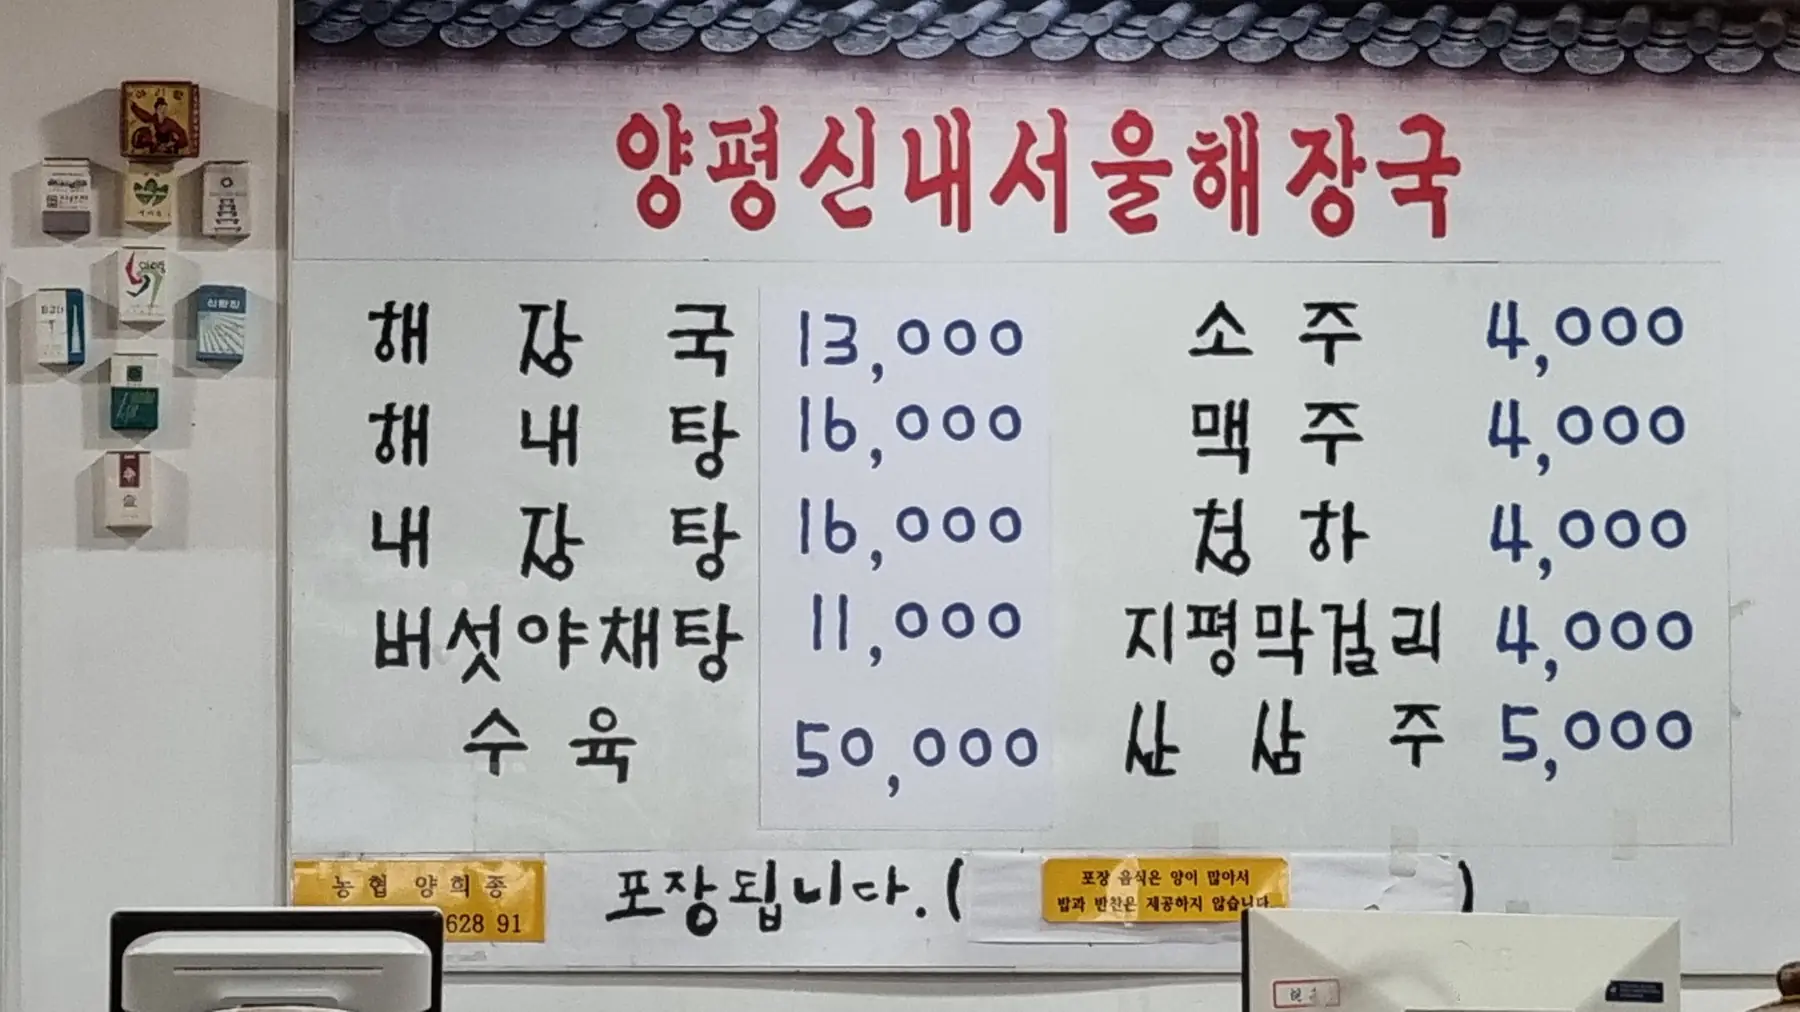 양평신내서울해장국
해장국 13,000
해내탕 16,000
내장탕 16,000
버섯야채탕 11,000
수육 50,000
소주 4,000
맥주 4,000
청하 4,000
지평막걸리 4,000
산삼주 5,000
농협 양희종
628 91
포장됩니다.(
포장 음식은 양이 많아서
밥과 반찬은 제공하지 않습니다
)
아리랑
신탄진